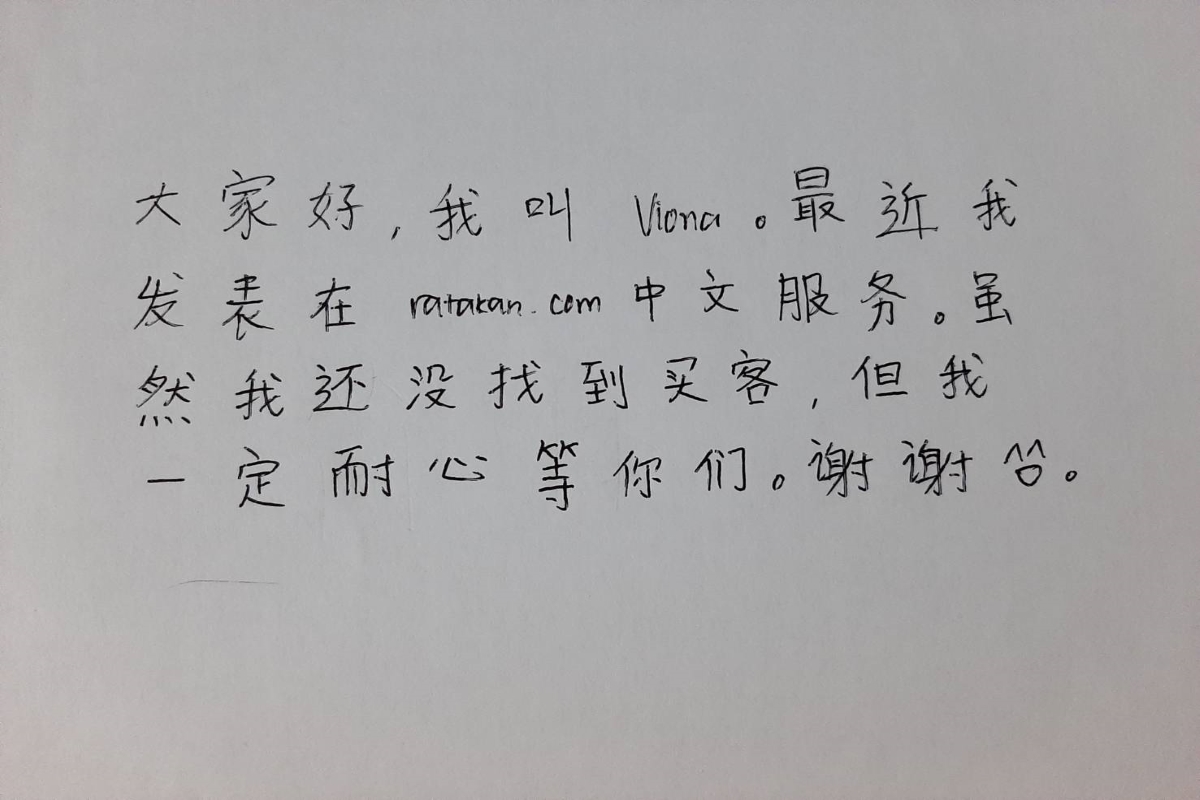 大家好，我叫 Viona。最近我
发表在 ratakan.com 中文服务。虽
然我还没找到买客，但我
一定耐心等你们。谢谢 ^^。